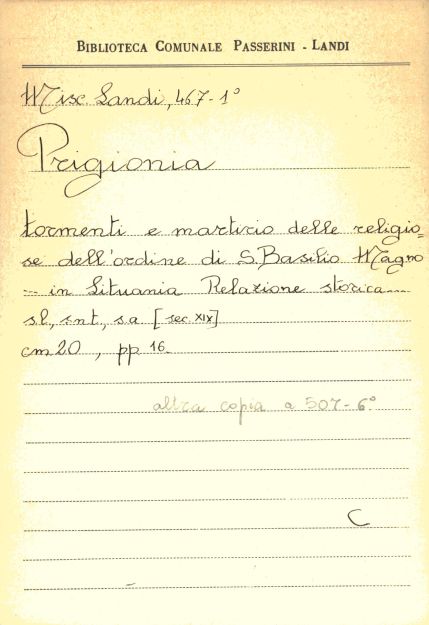 BIBLIOTECA COMUNALE PASSERINI - LANDI
Misc Landi, 467-1°
Prigionia
tormenti e martirio delle religio=
se dell'ordine di S. Basilio Magno
... in Lituania Relazione storica...
s.l, s.n.t, s.a [sec. XIX]
cm 20, pp 16.
altra copia a 507-6°
C